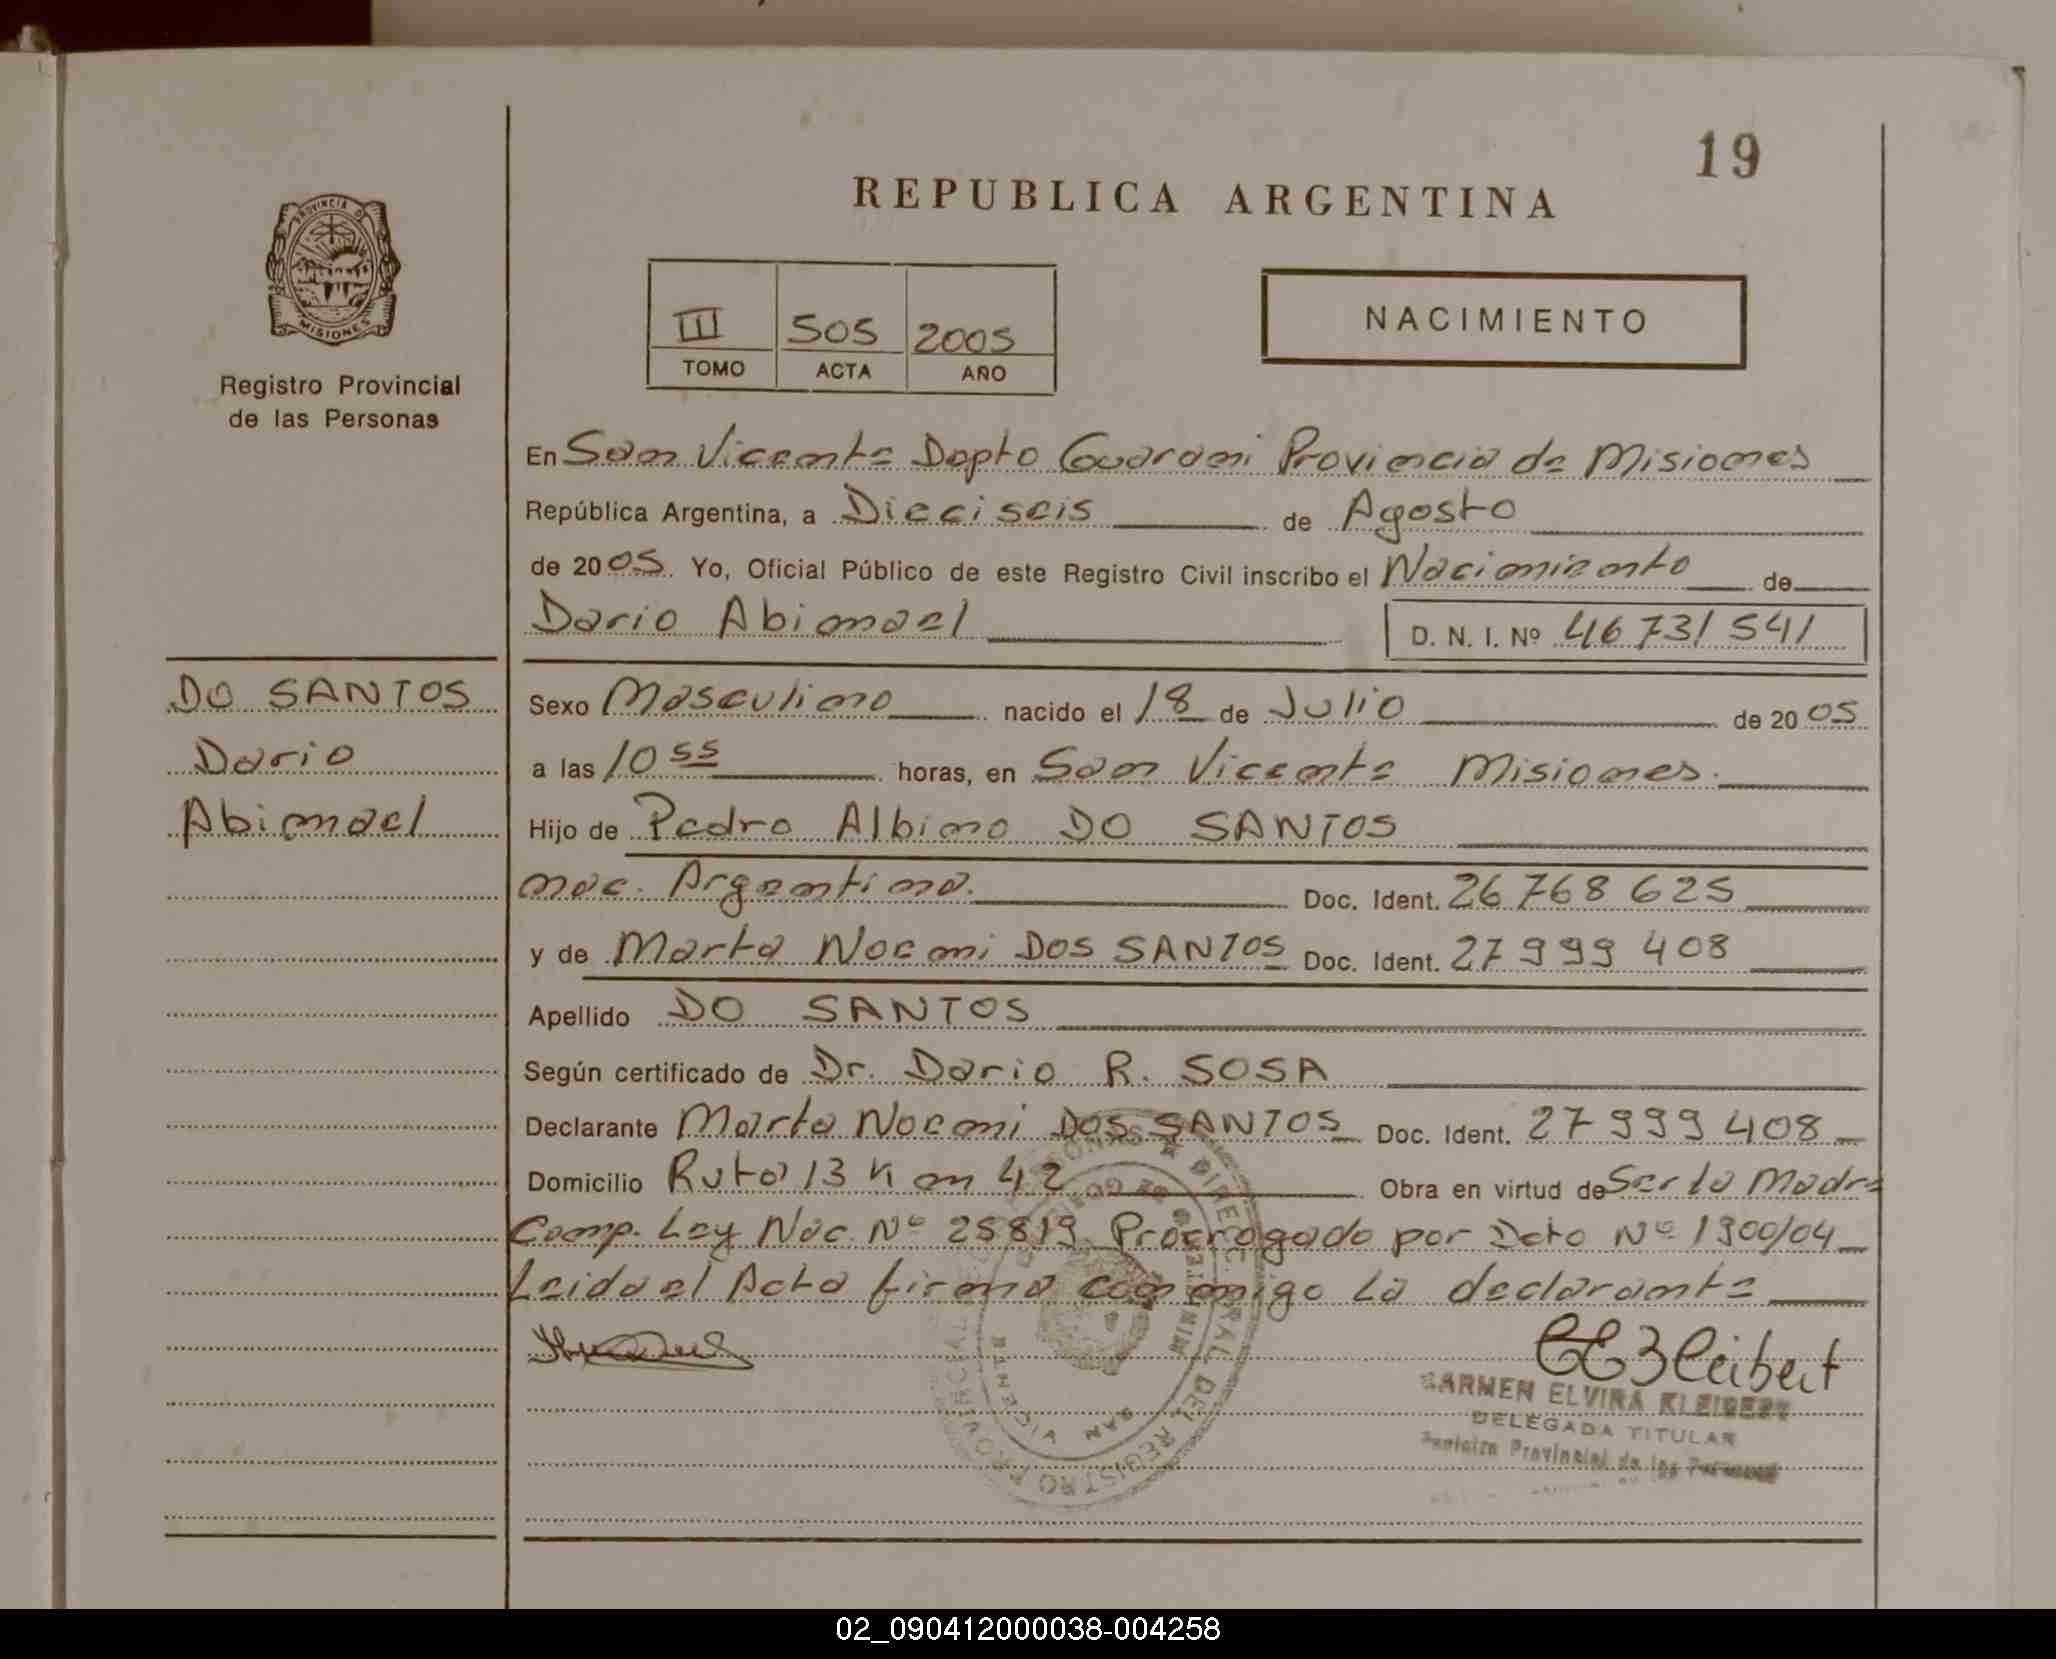 19
REPUBLICA ARGENTINA
PROVINCIA DE
MISIONES
Registro Provincial
de las Personas
III 505 2005
TOMO ACTA AÑO
NACIMIENTO
En San Vicente Depto Guarani Provincia de Misiones
República Argentina, a Dieciseis de Agosto
de 2005. Yo, Oficial Público de este Registro Civil inscribo el Nacimiento de
Dario Abimael D. N. I. Nº 46731541
DO SANTOS
Dario
Abimael
Sexo Masculino nacido el 18 de Julio de 2005
a las 10 55 horas, en San Vicente Misiones.
Hijo de Pedro Albino DO SANTOS
nac. Argentina. Doc. Ident. 26768625
y de Marta Noemi DOS SANTOS Doc. Ident. 27999408
Apellido DO SANTOS
Según certificado de Dr. Dario R. SOSA
Declarante Marta Noemi DOS SANTOS Doc. Ident. 27999408
Domicilio Ruta 13 Km 42 Obra en virtud de Ser la Madre
Comp. Ley Nac. Nº 25819 Prorrogado por Dcto Nº 1300/04
Leida el Acta firma conmigo la declarante
CEKleibert
CARMEN ELVIRA KLEIBERT
DELEGADA TITULAR
Registro Provincial de las Personas
REGISTRO PROVINCIAL DE PERSONAS ★ DIREC. GRAL. DEL
SAN VICENTE
02_090412000038-004258